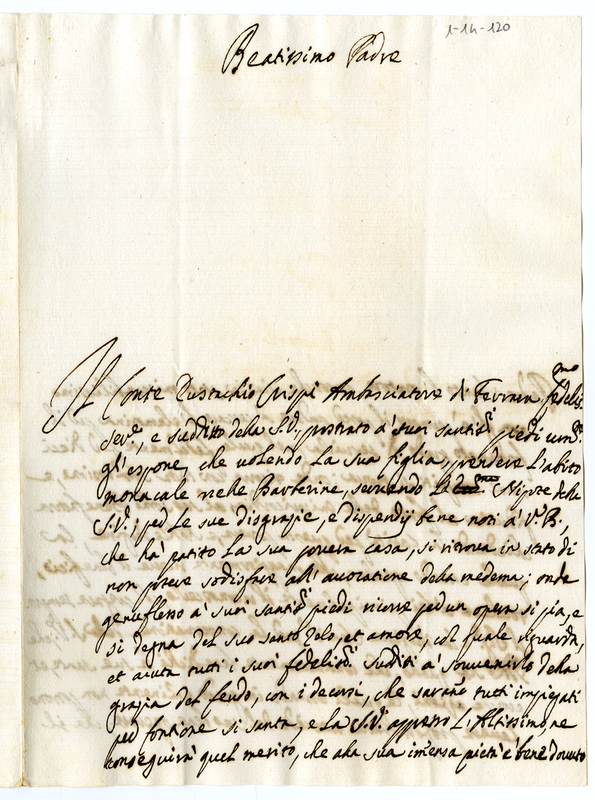 1-14-120
Beatissimo Padre
Il Conte Eustachio Crispi Ambasciatore di Ferrara fedelis.mo
Ser.e, e suddito della S.V., postrato a' suoi santis.i piedi um.te
gl'espone, che volendo La sua figlia, prendere L'abito
monacale nelle Barberine, servendo Nipote della
S.V.; ped Le sue disgrazie, e dispendij bene noti à V.B.,
che ha' patito La sua povera casa, si ritrova in stato di
non potere sodisfare all' vocatione della medema; onde
genuflesso a' suoi santis.i piedi ricorre ped un opera si pia, e
si degna del suo santo Zelo, et amore, col quale riguarda,
et aiuta tutti i suoi fedelis.i sudditi a' souvenirlo della
grazia del feudo, con i decorsi, che sarano tutti impiegati
ped fontione si santa, e La S.V. appresso L'Altissimo, ne
conseguirà quel merito, che alla sua imensa pietà è bene dovuto